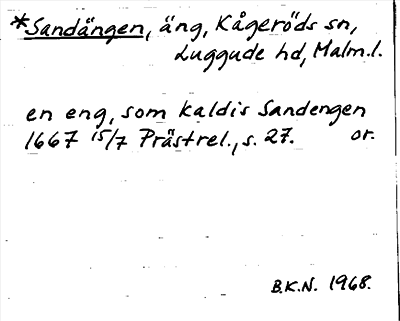 *Sandängen, äng, Kågeröds sn,
Luggude hd, Malm.l.
en eng, som kaldis Sandengen
1667 15/7 Prästrel., s. 27. or.
B.K.N. 1968.